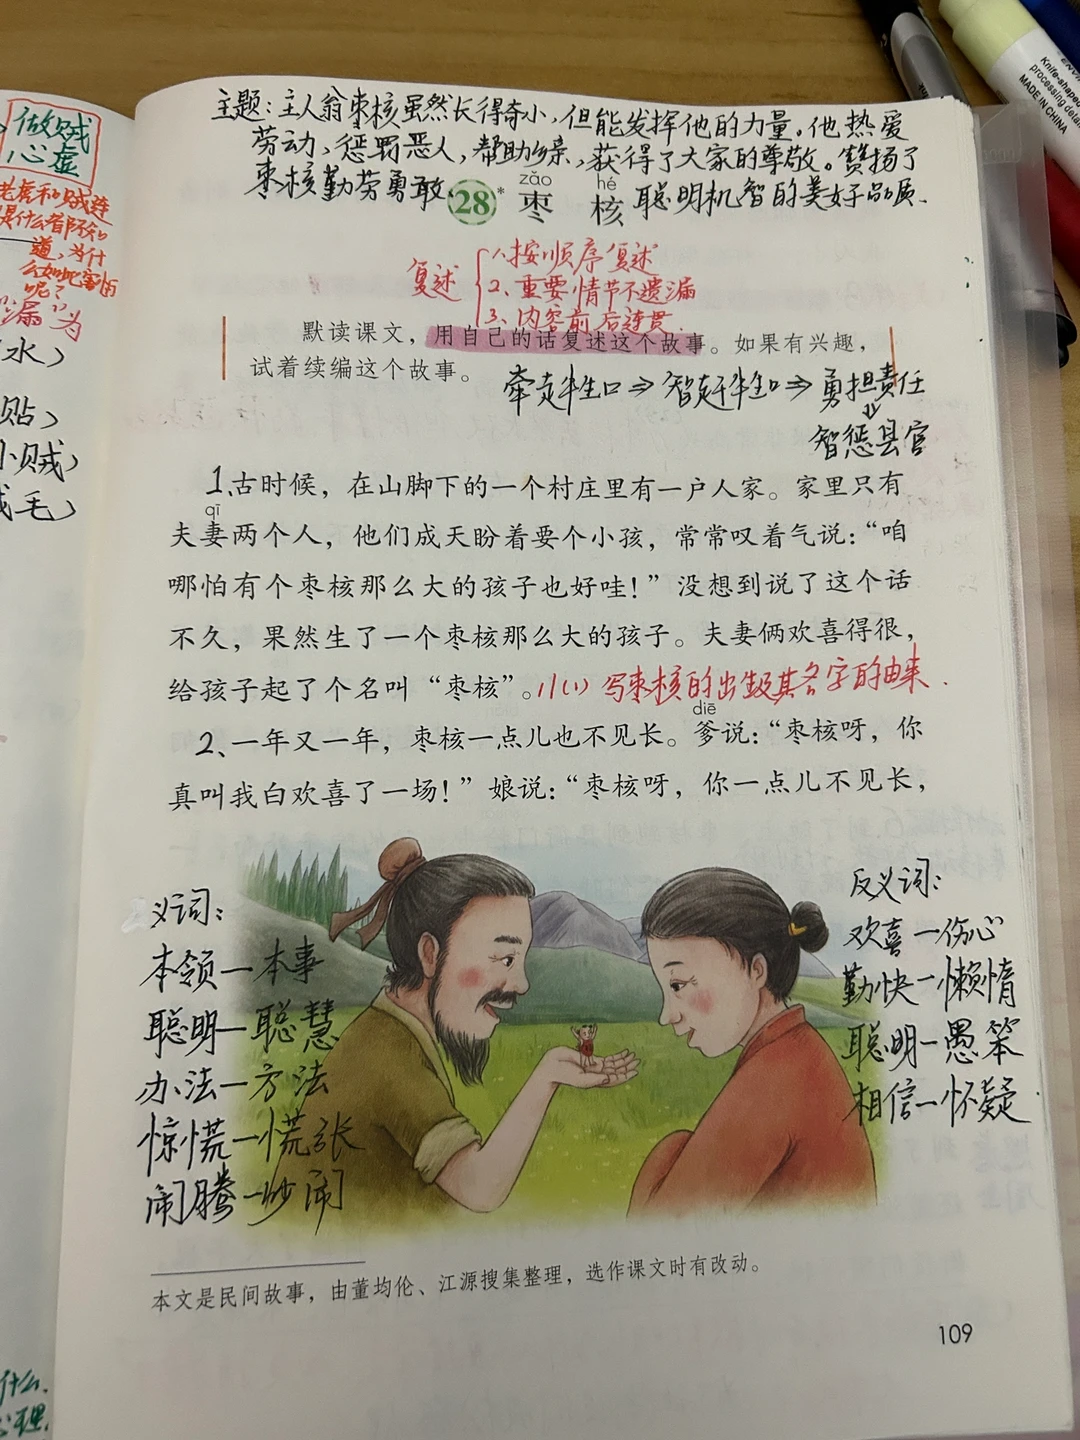 做贼
心虚
老虎和贼连
是什么都不知
道，为什
么如此害怕
呢？
"漏"为
水）
贴）
小贼）
毛）
什么.
主题：主人翁枣核虽然长得奇小，但能发挥他的力量。他热爱
劳动，惩罚恶人，帮助乡亲，获得了大家的尊敬。赞扬了
枣核勤劳勇敢 聪明机智的美好品质.
zǎo hé
28* 枣 核
复述
1、按顺序复述
2、重要情节不遗漏
3、内容前后连贯.
默读课文，用自己的话复述这个故事。如果有兴趣，
试着续编这个故事。
牵走牲口⇒智赶牲口⇒勇担责任
⇓
智惩县官
1、古时候，在山脚下的一个村庄里有一户人家。家里只有
qī
夫妻两个人，他们成天盼着要个小孩，常常叹着气说：“咱
哪怕有个枣核那么大的孩子也好哇！”没想到说了这个话
不久，果然生了一个枣核那么大的孩子。夫妻俩欢喜得很，
给孩子起了个名叫“枣核”。//(1) 写枣核的出生及其名字的由来.
diē
2、一年又一年，枣核一点儿也不见长。爹说：“枣核呀，你
真叫我白欢喜了一场！”娘说：“枣核呀，你一点儿不见长，
义词：
本领—本事
聪明—聪慧
办法—方法
惊慌—慌张
闹腾—吵闹
反义词：
欢喜—伤心
勤快—懒惰
聪明—愚笨
相信—怀疑
本文是民间故事，由董均伦、江源搜集整理，选作课文时有改动。
109
Knife-shaped
processing
MADE IN CHINA